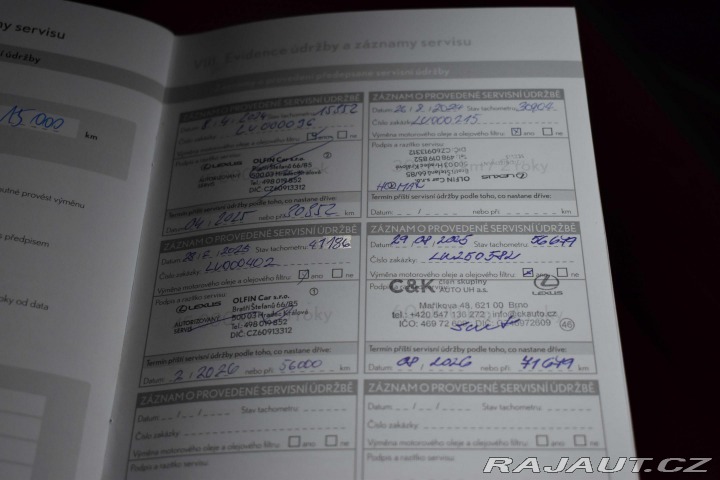 y servisu
í údržby
15 000 km
utné provést výměnu
předpisem
oky od data
VIII. Evidence údržby a záznamy servisu
ZÁZNAM O PROVEDENÉ SERVISNÍ ÚDRŽBĚ
Datum 8. 4. 2024 Stav tachometru 15552
Číslo zakázky LV000096
Výměna motorového oleje a olejového filtru: ano ne
Podpis a razítko servisu
LEXUS
AUTORIZOVANÝ SERVIS
OLFIN Car s.r.o.
Bratří Štefanů 66/85
500 03 Hradec Králové
Tel: 498 019 852
DIČ: CZ60913312
Termín příští servisní údržby podle toho, co nastane dříve:
04. 2025 nebo při 30552 km
ZÁZNAM O PROVEDENÉ SERVISNÍ ÚDRŽBĚ
Datum Stav tachometru
Číslo zakázky LV000215
Výměna motorového oleje a olejového filtru: ano ne
Podpis a razítko servisu
OLFIN Car s.r.o.
Bratří Štefanů 66/85
500 03 Hradec Králové
Tel: 498 019 852
DIČ: CZ60913312
LEXUS
Termín příští servisní údržby podle toho, co nastane dříve:
Datum __/__/__ nebo při km
ZÁZNAM O PROVEDENÉ SERVISNÍ ÚDRŽBĚ
Datum 2025 Stav tachometru: 41186
Číslo zakázky: LV000402
Výměna motorového oleje a olejového filtru: ano ne
Podpis a razítko servisu:
LEXUS
AUTORIZOVANÝ SERVIS
OLFIN Car s.r.o.
Bratří Štefanů 66/85
500 03 Hradec Králové
Tel: 498 019 852
DIČ: CZ60913312
Termín příští servisní údržby podle toho, co nastane dříve:
2. 2026 nebo při 56000 km
ZÁZNAM O PROVEDENÉ SERVISNÍ ÚDRŽBĚ
Datum: 29 08 2025 Stav tachometru: 56679
Číslo zakázky:
Výměna motorového oleje a olejového filtru: ano ne
C&K člen skupiny AUTO UH a.s.
LEXUS
Maříkova 48, 621 00 Brno
46
Termín příští servisní údržby podle toho, co nastane dříve:
08 2026 nebo při 71679 km
ZÁZNAM O PROVEDENÉ SERVISNÍ ÚDRŽBĚ
Datum __/__/__ Stav tachometru:
Číslo zakázky:
Výměna motorového oleje a olejového filtru: ano ne
Podpis a razítko servisu:
ZÁZNAM O PROVEDENÉ SERVISNÍ ÚDRŽBĚ
Datum: __/__/__ Stav tachometru:
Číslo zakázky:
Výměna motorového oleje a olejového filtru: ano ne
Podpis a razítko servisu:
RAJAUT.CZ